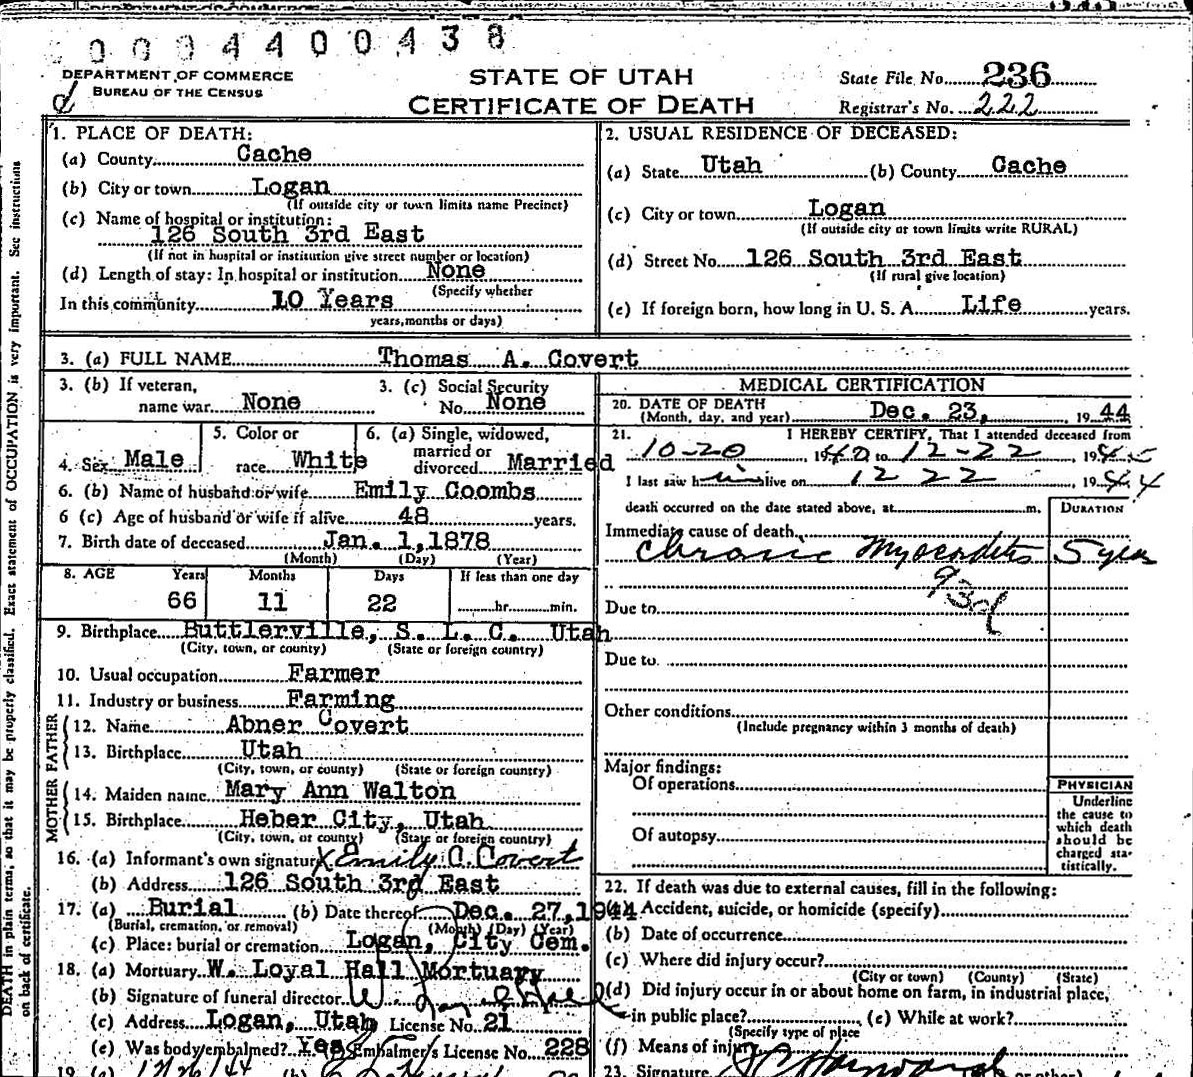 0 0 0 4 4 0 0 4 3 8
DEPARTMENT OF COMMERCE
BUREAU OF THE CENSUS
d
STATE OF UTAH
CERTIFICATE OF DEATH
State File No. 236
Registrar's No. 222
1. PLACE OF DEATH:
(a) County Cache
(b) City or town Logan
(If outside city or town limits name Precinct)
(c) Name of hospital or institution:
126 South 3rd East
(If not in hospital or institution give street number or location)
(d) Length of stay: In hospital or institution None
(Specify whether
In this community 10 Years
years, months or days)
2. USUAL RESIDENCE OF DECEASED:
(a) State Utah (b) County Cache
(c) City or town Logan
(If outside city or town limits write RURAL)
(d) Street No. 126 South 3rd East
(If rural give location)
(e) If foreign born, how long in U. S. A. Life years.
3. (a) FULL NAME Thomas A. Covert
3. (b) If veteran, 3. (c) Social Security
name war None No. None
4. Sex Male 5. Color or race White 6. (a) Single, widowed, married or divorced Married
6. (b) Name of husband or wife Emily Coombs
6 (c) Age of husband or wife if alive 48 years.
7. Birth date of deceased Jan. 1, 1878
(Month) (Day) (Year)
8. AGE Years Months Days If less than one day
66 11 22 hr. min.
9. Birthplace Buttlerville, S. L. C. Utah
(City, town, or county) (State or foreign country)
10. Usual occupation Farmer
11. Industry or business Farming
FATHER
12. Name Abner Covert
13. Birthplace Utah
(City, town, or county) (State or foreign country)
MOTHER
14. Maiden name Mary Ann Walton
15. Birthplace Heber City, Utah
(City, town, or county) (State or foreign country)
16. (a) Informant's own signature x Emily C. Covert
(b) Address 126 South 3rd East
17. (a) Burial (b) Date thereof Dec. 27, 1944
(Burial, cremation, or removal) (Month) (Day) (Year)
(c) Place: burial or cremation Logan, City Cem.
18. (a) Mortuary W. Loyal Hall Mortuary
(b) Signature of funeral director W. Loyal Hall
(c) Address Logan, Utah License No. 21
(e) Was body embalmed? Yes Embalmer's License No. 228
19. (a) 12/26/44 (b)
MEDICAL CERTIFICATION
20. DATE OF DEATH
(Month, day, and year) Dec. 23, 1944
21. I HEREBY CERTIFY, That I attended deceased from
10-20, 1940 to 12-22 19
I last saw him alive on 12 22, 1944
death occurred on the date stated above, at m. DURATION
Immediate cause of death
Chronic Myocarditis 5 years
93d
Due to
Due to
Other conditions
(Include pregnancy within 3 months of death)
Major findings:
Of operations
Of autopsy
PHYSICIAN
Underline
the cause to
which death
should be
charged sta-
tistically.
22. If death was due to external causes, fill in the following:
(a) Accident, suicide, or homicide (specify)
(b) Date of occurrence
(c) Where did injury occur?
(City or town) (County) (State)
(d) Did injury occur in or about home on farm, in industrial place,
in public place? (e) While at work?
(Specify type of place
(f) Means of injury
23. Signature
or other)
DEATH in plain terms, so that it may be properly classified. Exact statement of OCCUPATION is very important. See instructions
on back of certificate.